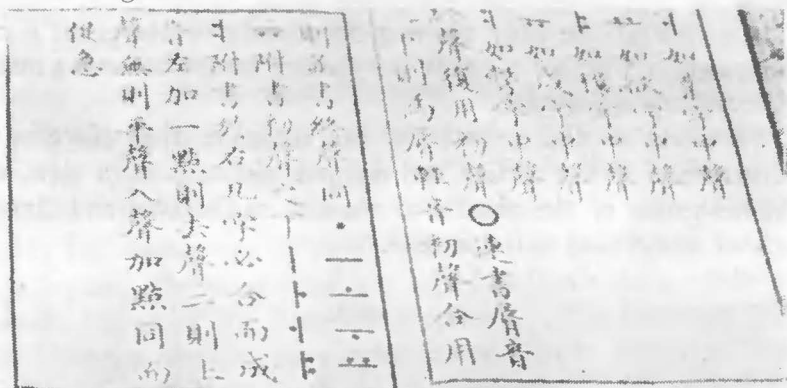 如 字中聲
如欲字中聲
如穰字中聲
如戌字中聲
如彆字中聲
聲復用初聲○連書脣音
下則爲脣輕音初聲合用
則並書終聲同・ㅡㅗㅜㅛㅠ
附書初聲之下ㅣㅏㅓㅑㅕ
附書於右凡字必合而成
音左加一點則去聲二則上
聲無則平聲入聲加點同而
促急